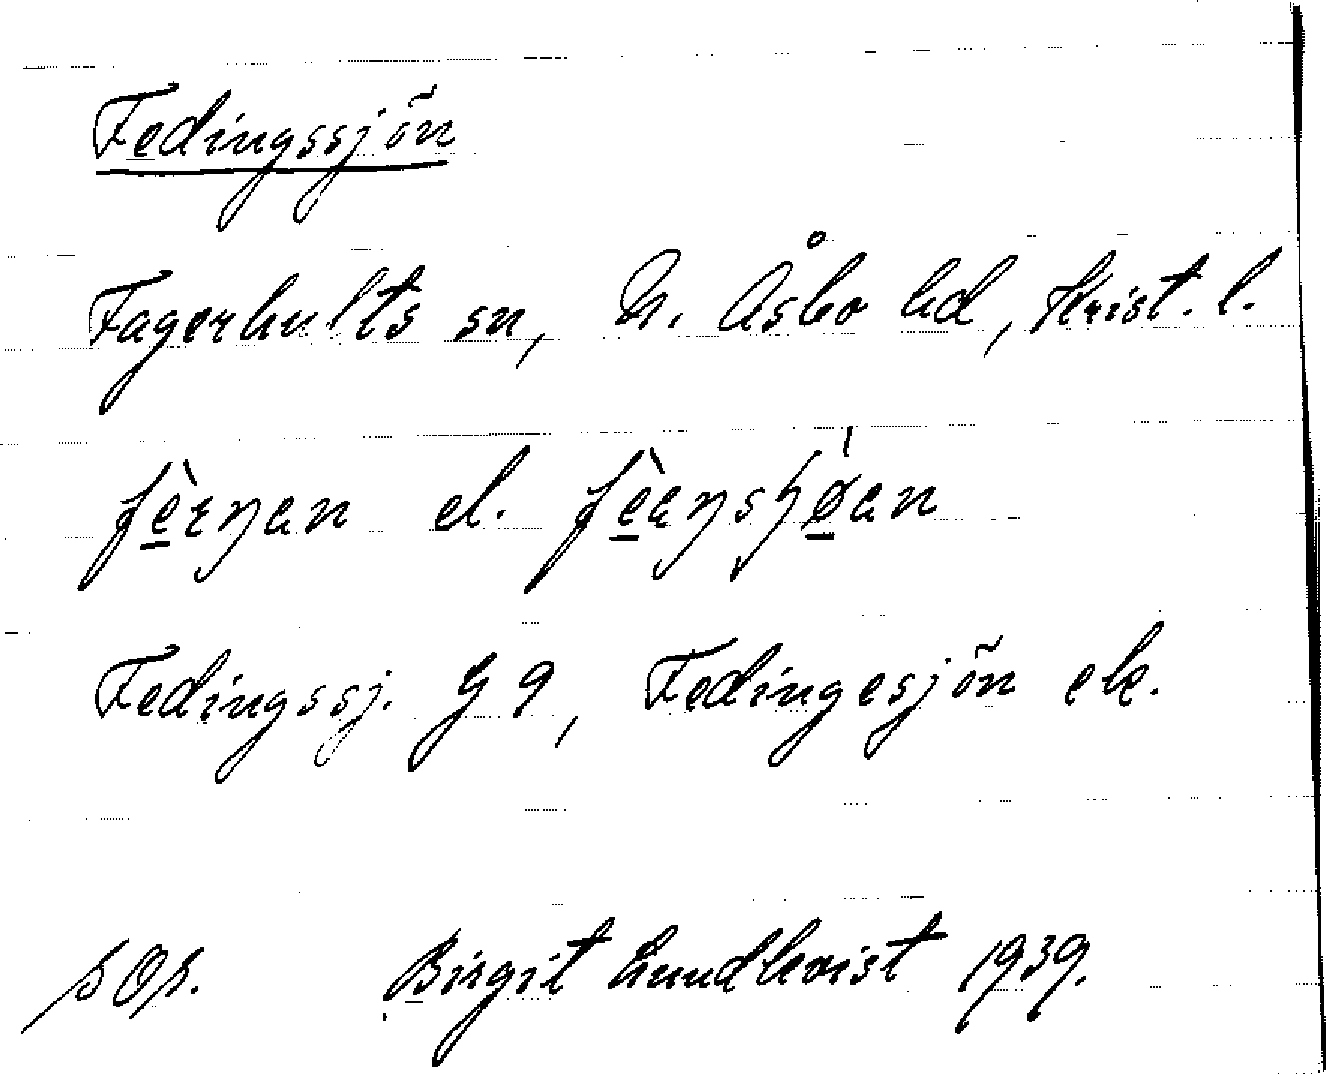 Fedingssjön
Fagerhults sn, N. Åsbo hd, Krist. l.
fèɛŋan el. fèaŋsɧø̀an
Fedingssj. G 9, Fedingesjön ek.
Birgit Lundkvist 1939.